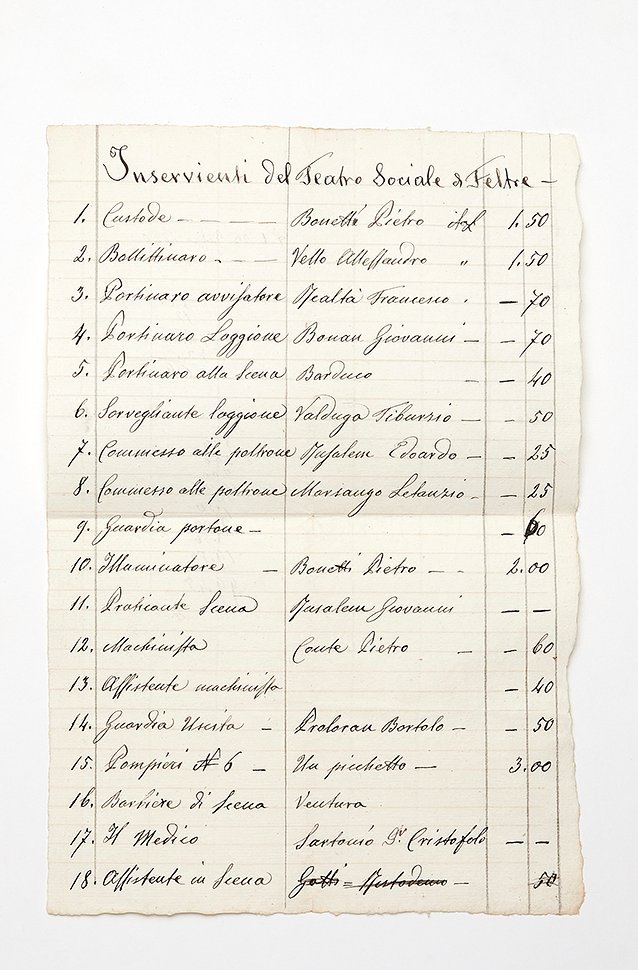 Inservienti del Teatro Sociale di Feltre —
1. Custode — — — — Bonetti Pietro ital 1. 50
2. Bollittinaro — — — Vello Allessandro " 1. 50
3. Portinaro avvisatore Realtà Francesco — 70
4. Portinaro Loggione Bonan Giovanni — — 70
5. Portinaro alla Scena Barduco — — 40
6. Sorvegliante loggione Valduga Tiburzio — — 50
7. Commesso alle poltrone Rusalem Edoardo — — 25
8. Commesso alle poltrone Morsango Letanzio — — 25
9. Guardia portone — — 60
10. Illuminatore — Bonetti Pietro — — 2. 00
11. Praticante Scena Rusalem Giovanni — —
12. Machinista Conte Pietro — — 60
13. Assistente machinista — 40
14. Guardia Uscita — Proloran Bortolo — — 50
15. Pompieri N 6 — Un picchetto — 3. 00
16. Barbiere di Scena Ventura
17. Il Medico Sartorio Dr. Cristofolo — —
18. Assistente in Scena Gotti = — 50